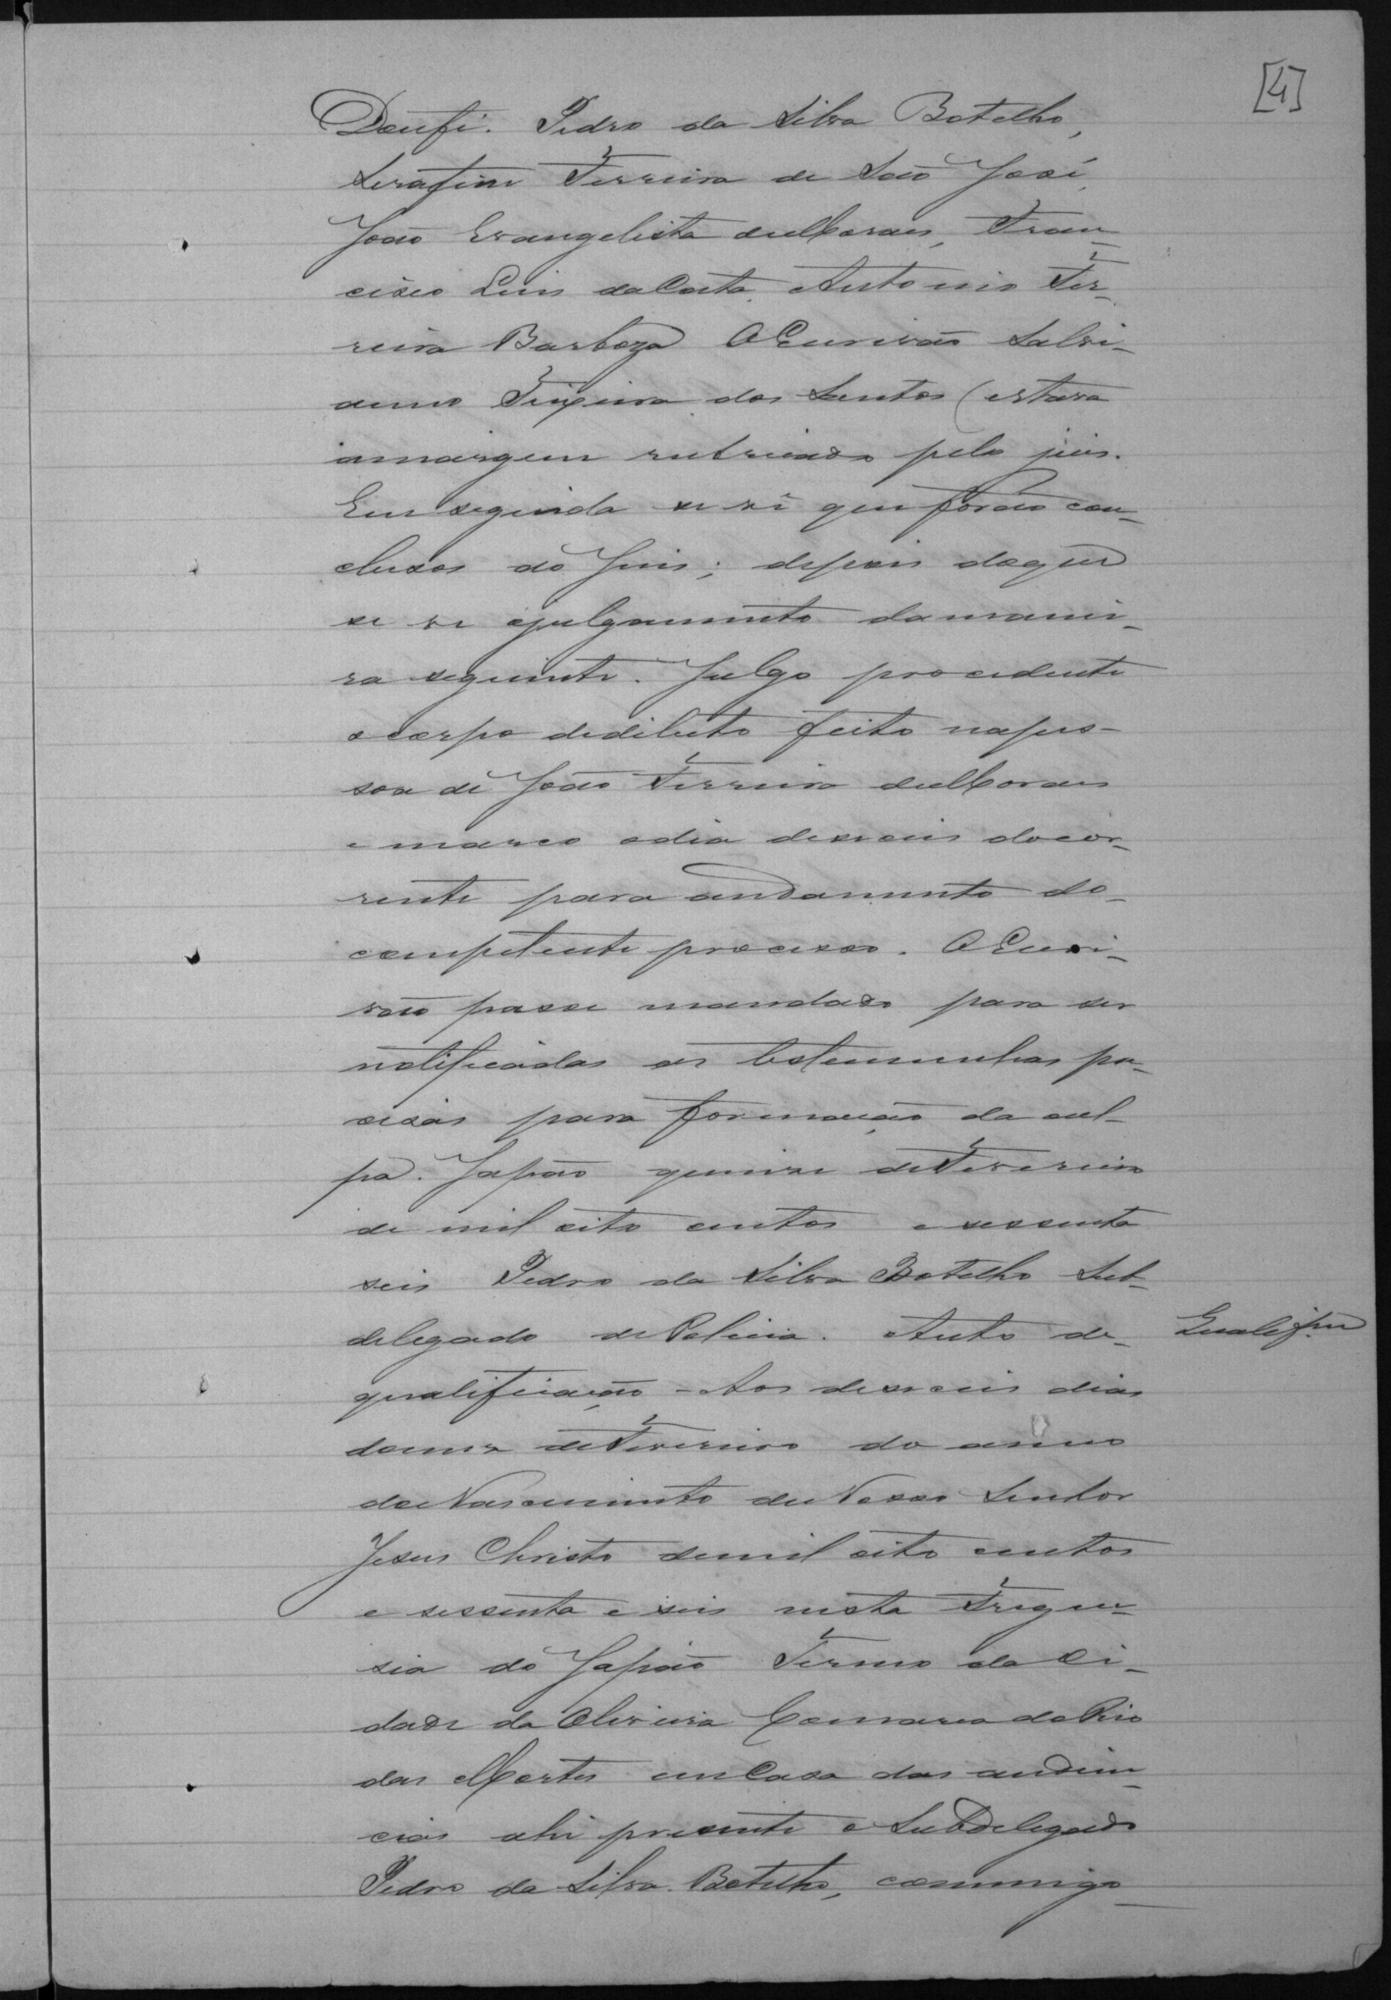 [4]
Doufé. Pedro da Silva Botelho,
Serafim Ferreira de São José,
João Evangelista deMoraes, Fran-
cisco Luis daCosta, Antonio Fer-
reira Barboza OEscrivão Salvi-
anno Teixeira dos Santos (estava
amargem rubricado pelo juis.
Em seguida se vê que forão con-
clusos ao Juis; depois doque
se ve ojulgamento damanei-
ra seguinte. Julgo procedente
o corpo dedelicto feito napes-
soa de João Ferreira deMoraes
e marco odia deseseis docor-
rente para andamento do-
competente processo. OEscri-
vão passe mandado para ser
notificadas as testemunhas pre-
cisas para formação da cul-
pa. Japão quinze deFevereiro
de mil oito centos e sessenta
seis Pedro da Silva Botelho Sub-
delegado dePolicia. Auto de- Qualifçm
qualificação - Aos deseseis dias
domez deFevereiro do anno
doNascimento deNosso Senhor
Jesus Christo demil oito centos
e sessenta e seis nesta Fregue-
sia do Japão Termo da Ci-
dade da Oliveira Comarca doRio
das Mortes emCasa das audien-
cias ahi presente o Subdelegado
Pedro da Silva Botelho, commigo